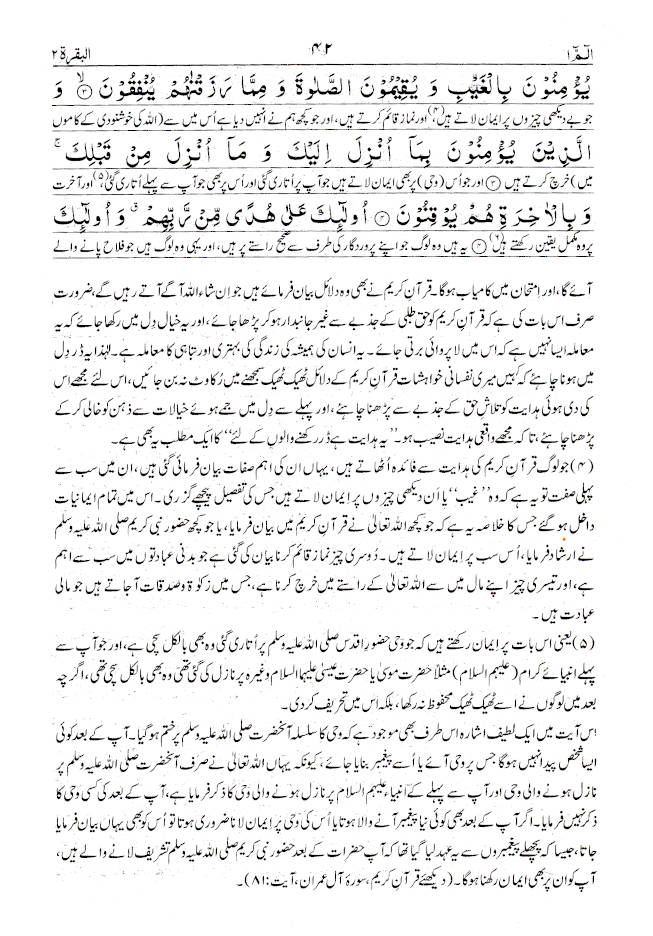 الٓمّٓ ۱ ۴۲ البقرة ۲
يُؤْمِنُوْنَ بِالْغَيْبِ وَ يُقِيْمُوْنَ الصَّلٰوةَ وَ مِمَّا رَزَقْنٰهُمْ يُنْفِقُوْنَ ﴿۳﴾ وَ
جو بے دیکھی چیزوں پر ایمان لاتے ہیں(۴) اور نماز قائم کرتے ہیں، اور جو کچھ ہم نے انہیں دیا ہے اُس میں سے (اللہ کی خوشنودی کے کاموں
الَّذِيْنَ يُؤْمِنُوْنَ بِمَاۤ اُنْزِلَ اِلَيْكَ وَ مَاۤ اُنْزِلَ مِنْ قَبْلِكَ ۚ
میں) خرچ کرتے ہیں ﴿۳﴾ اور جو اُس (وحی) پر بھی ایمان لاتے ہیں جو آپ پر اُتاری گئی اور اُس پر بھی جو آپ سے پہلے اُتاری گئی(۵)، اور آخرت
وَ بِالْاٰخِرَةِ هُمْ يُوْقِنُوْنَ ﴿۴﴾ اُولٰٓئِكَ عَلٰى هُدًى مِّنْ رَّبِّهِمْ ۗ وَ اُولٰٓئِكَ
پر وہ مکمل یقین رکھتے ہیں(۶) ﴿۴﴾ یہ ہیں وہ لوگ جو اپنے پروردگار کی طرف سے صحیح راستے پر ہیں، اور یہی وہ لوگ ہیں جو فلاح پانے والے
آئے گا، اور امتحان میں کامیاب ہوگا۔ قرآنِ کریم نے بھی وہ دلائل بیان فرمائے ہیں جو اِن شاء اللہ آگے آتے رہیں گے، ضرورت
صرف اس بات کی ہے کہ قرآنِ کریم کو حق طلبی کے جذبے سے غیر جانبدار ہو کر پڑھا جائے، اور یہ خیال دِل میں رکھا جائے کہ یہ
معاملہ ایسا نہیں ہے کہ اس میں لا پروائی برتی جائے۔ یہ انسان کی ہمیشہ کی زندگی کی بہتری اور تباہی کا معاملہ ہے۔ لہٰذا یہ ڈر دِل
میں ہونا چاہئے کہ کہیں میری نفسانی خواہشات قرآنِ کریم کے دلائل ٹھیک ٹھیک سمجھنے میں رُکاوٹ نہ بن جائیں، اس لئے مجھے اس
کی دی ہوئی ہدایت کو تلاشِ حق کے جذبے سے پڑھنا چاہئے، اور پہلے سے دِل میں جمے ہوئے خیالات سے ذہن کو خالی کر کے
پڑھنا چاہئے، تاکہ مجھے واقعی ہدایت نصیب ہو۔ ’’یہ ہدایت ہے ڈر رکھنے والوں کے لئے‘‘ کا ایک مطلب یہ بھی ہے۔
(۴) جو لوگ قرآنِ کریم کی ہدایت سے فائدہ اُٹھاتے ہیں، یہاں ان کی اہم صفات بیان فرمائی گئی ہیں، ان میں سب سے
پہلی صفت تو یہ ہے کہ وہ ’’غیب‘‘ یا اَن دیکھی چیزوں پر ایمان لاتے ہیں جس کی تفصیل پیچھے گزری۔ اس میں تمام ایمانیات
داخل ہو گئے جس کا خلاصہ یہ ہے کہ جو کچھ اللہ تعالیٰ نے قرآنِ کریم میں بیان فرمایا، یا جو کچھ حضور نبی کریم صلی اللہ علیہ وسلم
نے ارشاد فرمایا، اُس سب پر ایمان لاتے ہیں۔ دُوسری چیز نماز قائم کرنا بیان کی گئی ہے جو بدنی عبادتوں میں سب سے اہم
ہے، اور تیسری چیز اپنے مال میں سے اللہ تعالیٰ کے راستے میں خرچ کرنا ہے، جس میں زکوٰۃ و صدقات آ جاتے ہیں جو مالی
عبادت ہیں۔
(۵) یعنی اس بات پر ایمان رکھتے ہیں کہ جو وحی حضورِ اقدس صلی اللہ علیہ وسلم پر اُتاری گئی وہ بھی بالکل سچی ہے، اور جو آپ سے
پہلے انبیائے کرام (علیہم السلام) مثلاً حضرت موسیٰ یا حضرت عیسیٰ علیہما السلام وغیرہ پر نازل کی گئی تھی وہ بھی بالکل سچی تھی، اگرچہ
بعد میں لوگوں نے اسے ٹھیک ٹھیک محفوظ نہ رکھا، بلکہ اس میں تحریف کر دی۔
اس آیت میں ایک لطیف اشارہ اس طرف بھی موجود ہے کہ وحی کا سلسلہ آنحضرت صلی اللہ علیہ وسلم پر ختم ہو گیا۔ آپ کے بعد کوئی
ایسا شخص پیدا نہیں ہوگا جس پر وحی آئے یا اُسے پیغمبر بنایا جائے، کیونکہ یہاں اللہ تعالیٰ نے صرف آنحضرت صلی اللہ علیہ وسلم پر
نازل ہونے والی وحی اور آپ سے پہلے کے انبیاء علیہم السلام پر نازل ہونے والی وحی کا ذکر فرمایا ہے، آپ کے بعد کی کسی وحی کا
ذکر نہیں فرمایا۔ اگر آپ کے بعد بھی کوئی نیا پیغمبر آنے والا ہوتا یا اُس کی وحی پر ایمان لانا ضروری ہوتا تو اُس کو بھی یہاں بیان فرمایا
جاتا، جیسا کہ پچھلے پیغمبروں سے یہ عہد لیا گیا تھا کہ آپ حضرات کے بعد حضور نبی کریم صلی اللہ علیہ وسلم تشریف لانے والے ہیں،
آپ کو ان پر بھی ایمان رکھنا ہوگا۔ (دیکھئے قرآنِ کریم، سورۂ آل عمران، آیت: ۸۱)۔